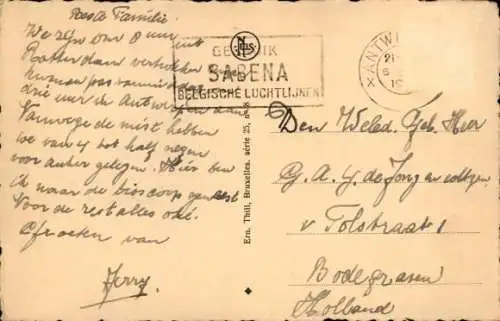 Beste Familie.
We zijn om 8 uur uit
Rotterdam vertrokken
kwamen pas vanmiddag
drie uur in Antwerpen aan
Vanwege de mist hebben
we van 4 tot half negen
voor anker gelegen. Hier ben
ik naar de bioscoop geweest
Voor de rest alles oké.
Groeten van
Jerry.
GEBRUIK
SABENA
BELGISCHE LUCHTLIJNEN
NELS
ANTW
21
Ern. Thill, Bruxelles. série 25, n° 8
Den Weled. Geb. Heer
G. A. G. de Jong en
v Tolstraat 1
Bodegraven
Holland